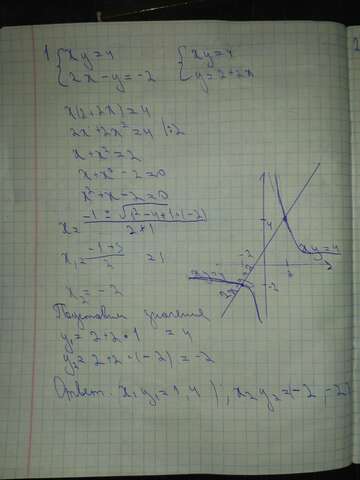 1. { xy=4   { xy=4
{ 2x-y=-2   { y=2+2x
x(2+2x)=4
2x+2x²=4 |:2
x+x²=2
x+x²-2=0
x²+x-2=0
x=(-1±√(1²-4*1*(-2)))/(2*1)
x₁=(-1+3)/2 =1
x₂=-2
Подставим значения
y₁=2+2·1=4
y₂=2+2·(-2)=-2
Ответ: x₁y₁=1,4); x₂y₂=(-2,-2)
4
xy=4
-2
xy=4
-2